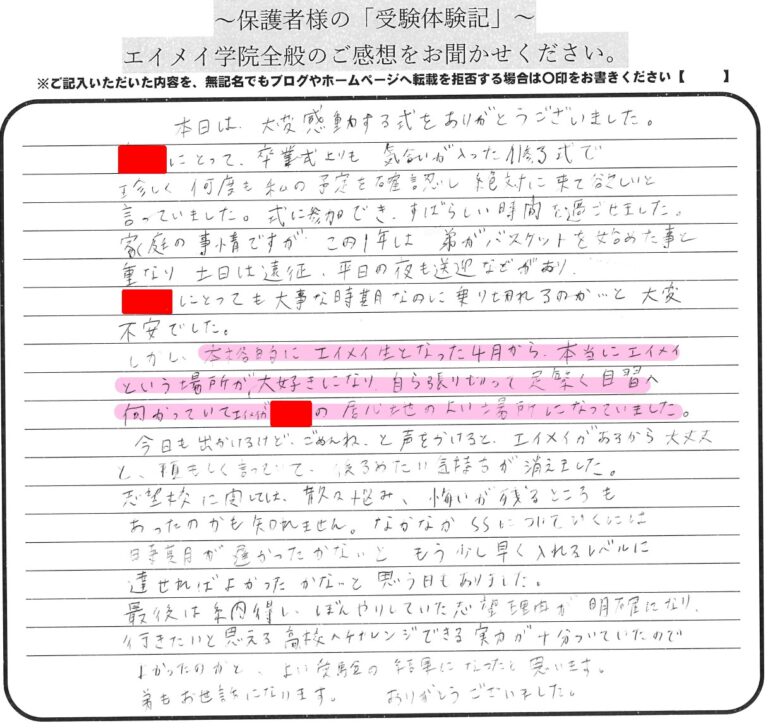 ～保護者様の「受験体験記」～
エイメイ学院全般のご感想をお聞かせください。
※ご記入いただいた内容を、無記名でもブログやホームページへ転載を拒否する場合は〇印をお書きください【　　】
本日は、大変感動する式をありがとうございました。
にとって、卒業式よりも 気合いが入った修了式で
珍しく 何度も私の予定を確認し 絶対に来て欲しいと
言っていました。式に参加でき、すばらしい時間を過ごせました。
家庭の事情ですが この1年は 弟がバスケットを始めた事と
重なり 土日は遠征、平日の夜も送迎などがあり、
にとっても大事な時期なのに乗り切れるのか…と 大変
不安でした。
しかし 本格的に エイメイ生となった4月から、本当にエイメイ
という場所が、大好きになり、自ら張り切って 足繁く自習へ
向かっていて エイメイが の 居心地のよい場所になっていました。
今日も出かけるけど、ごめんね、と声をかけると、エイメイがあるから 大丈夫
と、頼もしく言っていて、後ろめたい気持ちが消えました。
志望校に関しては、散々悩み、悔いが残るところも
あったのかも知れません。なかなか SSについていくには
時期が遅かったかな…と もう少し早く入れるレベルに
達せればよかったかな…と思う日もありました。
最後は納得し、ぼんやりしていた志望理由が 明確になり、
行きたいと思える高校へチャレンジできる実力が十分ついていたので
よかったのかと、よい受験の結果になったと思います。
弟もお世話になります。 ありがとうございました。